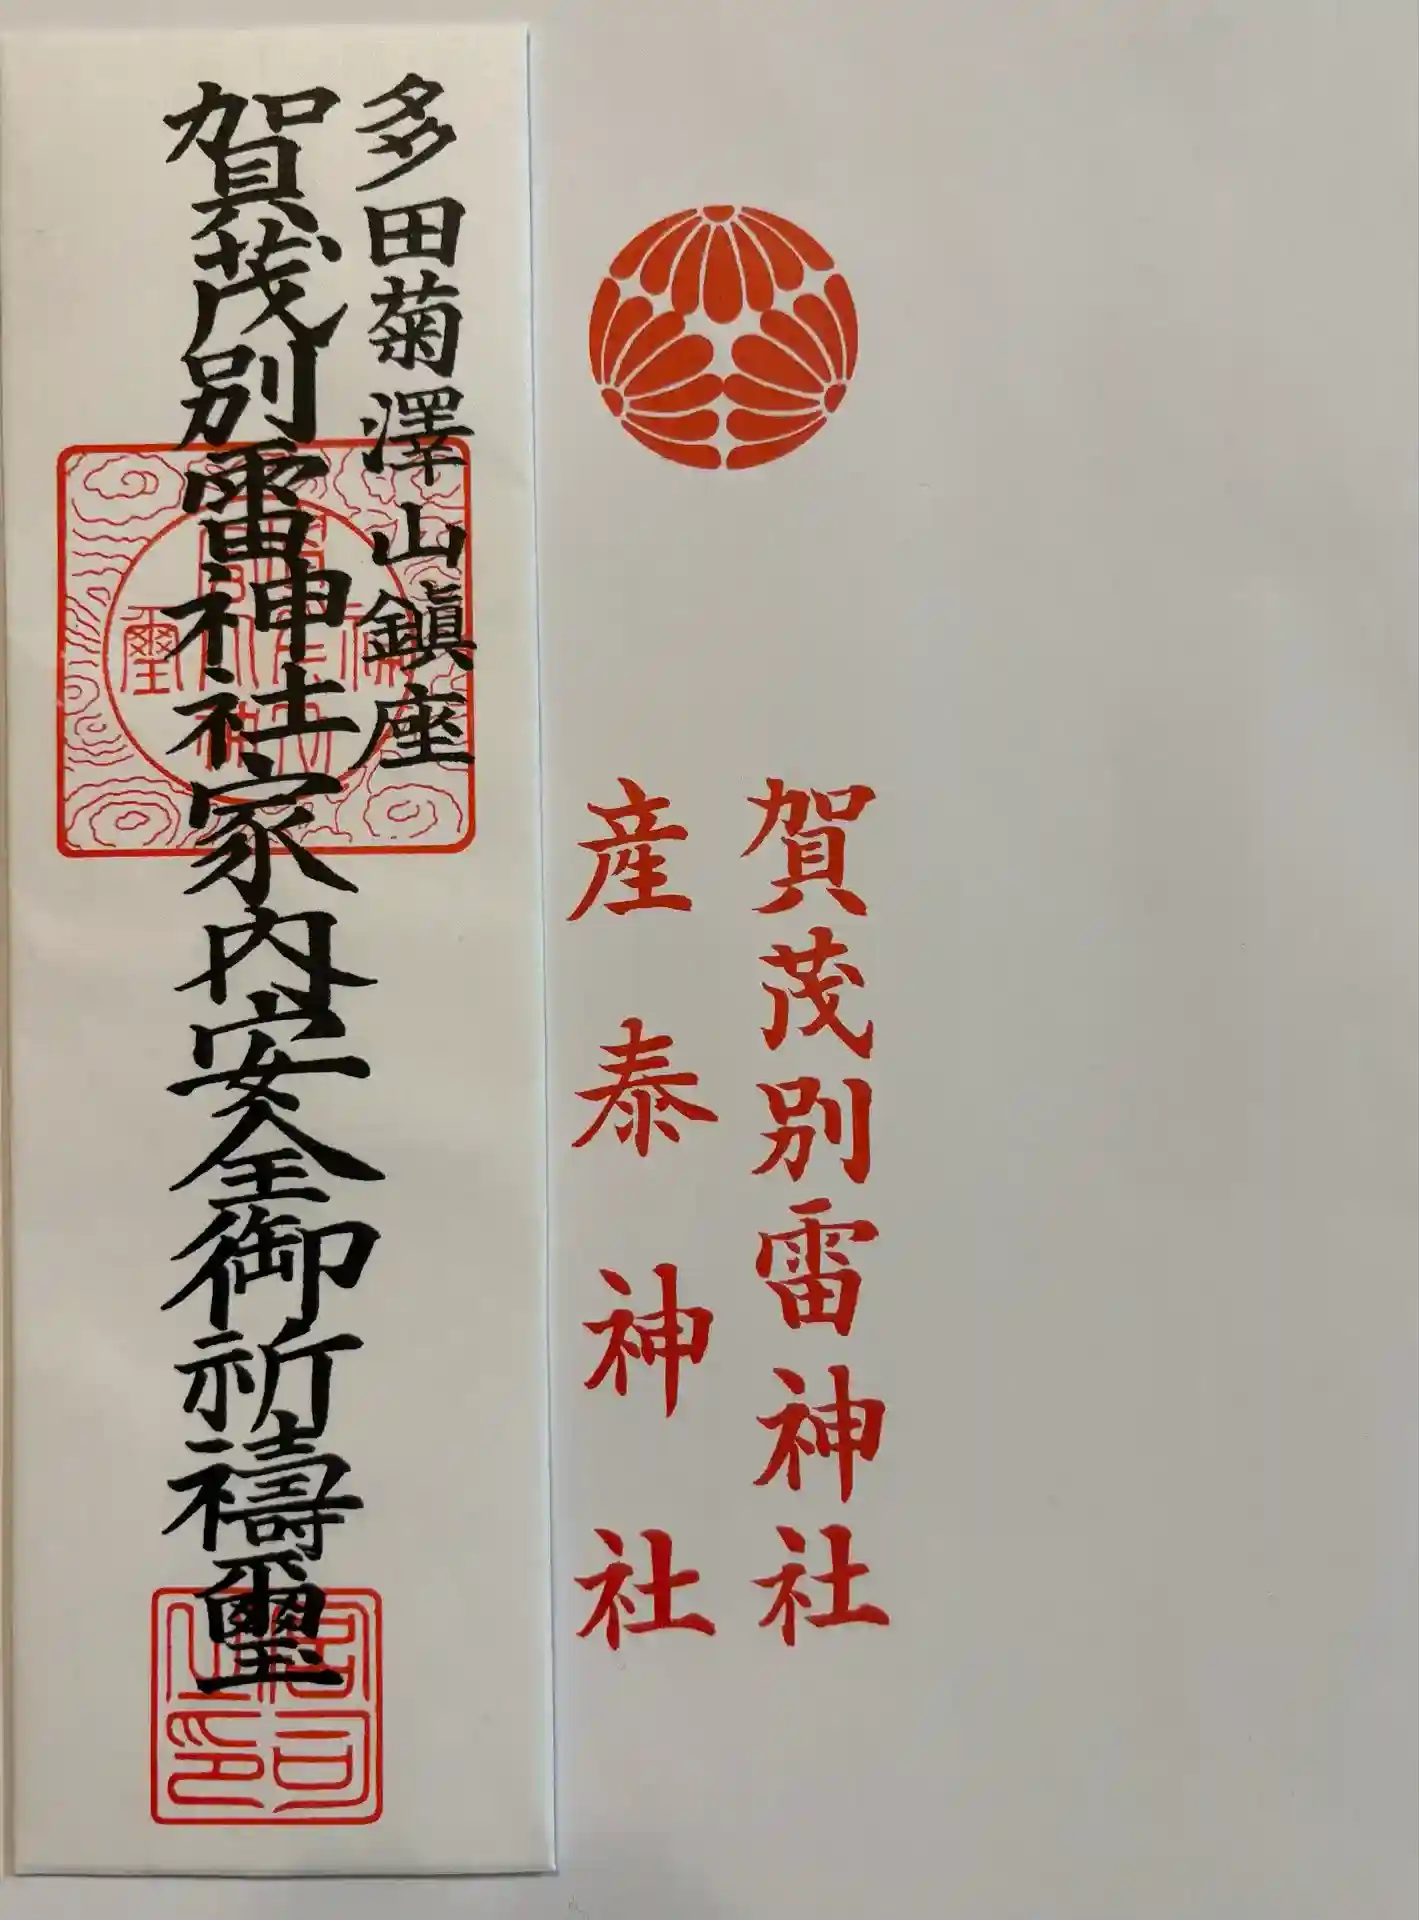 賀茂別雷神社
産泰神社
多田菊澤山鎮座
賀茂別雷神社家内安全御祈禱璽
宮司之印